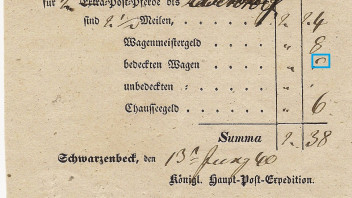 für 2 Extra-Post-Pferde bis
sind 2 1/2 Meilen, 2. 24
Wagenmeistergeld . . . . . " 8
bedeckten Wagen . . . . "
unbedeckten . . . . . "
Chausseegeld . . . . . " 6
Summa 2. 38
Schwarzenbeck, den 13n Juny 40
Königl. Haupt-Post-Expedition.